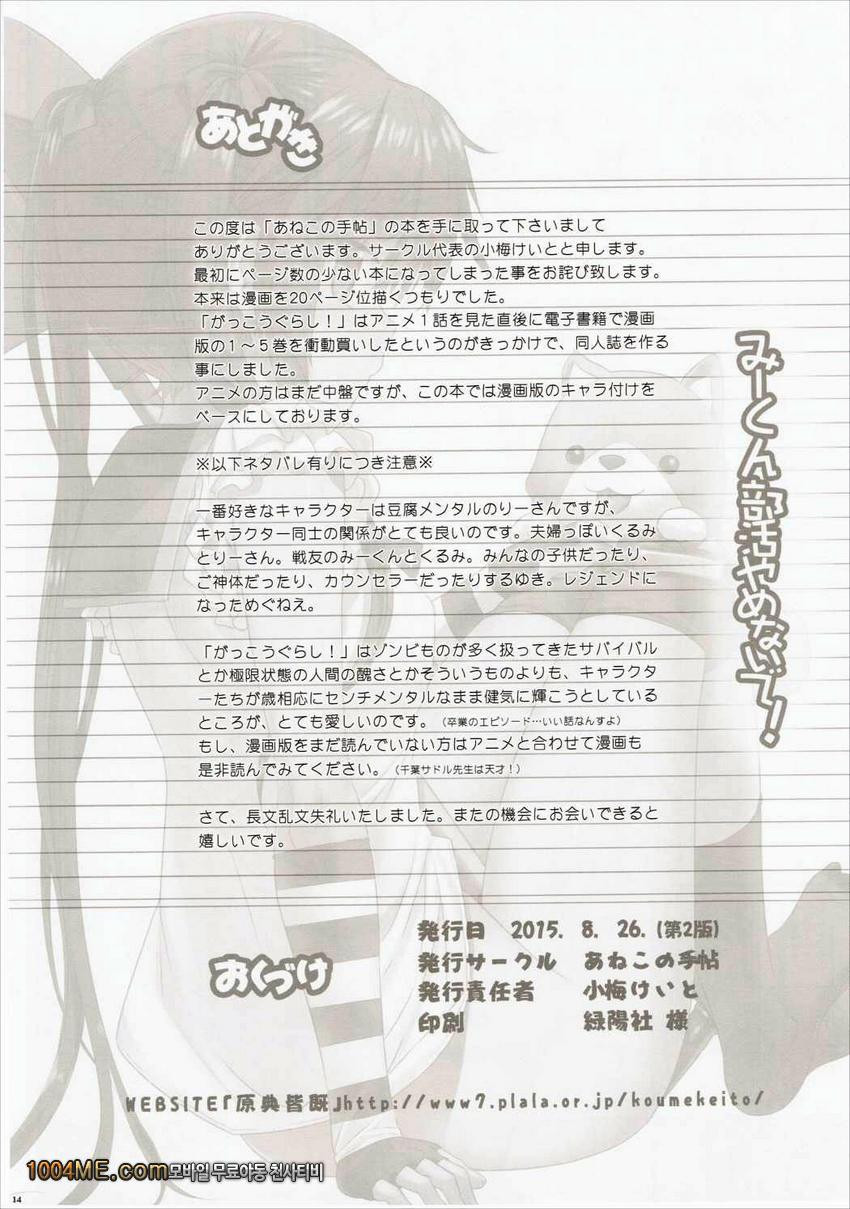 あとがき
この度は「あねこの手帖」の本を手に取って下さいまして
ありがとうございます。サークル代表の小梅けいとと申します。
最初にページ数の少ない本になってしまった事をお詫び致します。
本来は漫画を20ページ位描くつもりでした。
「がっこうぐらし！」はアニメ１話を見た直後に電子書籍で漫画
版の１～５巻を衝動買いしたというのがきっかけで、同人誌を作る
事にしました。
アニメの方はまだ中盤ですが、この本では漫画版のキャラ付けを
ベースにしております。
※以下ネタバレ有りにつき注意※
一番好きなキャラクターは豆腐メンタルのりーさんですが、
キャラクター同士の関係がとても良いのです。夫婦っぽいくるみ
とりーさん。戦友のみーくんとくるみ。みんなの子供だったり、
ご神体だったり、カウンセラーだったりするゆき。レジェンドに
なっためぐねえ。
「がっこうぐらし！」はゾンビものが多く扱ってきたサバイバル
とか極限状態の人間の醜さとかそういうものよりも、キャラクタ
ーたちが歳相応にセンチメンタルなまま健気に輝こうとしている
ところが、とても愛しいのです。（卒業のエピソード…いい話なんすよ）
もし、漫画版をまだ読んでいない方はアニメと合わせて漫画も
是非読んでみてください。（千葉サドル先生は天才！）
さて、長文乱文失礼いたしました。またの機会にお会いできると
嬉しいです。
みーくん部活やめないで！
おくづけ
発行日 2015. 8. 26. (第2版)
発行サークル あねこの手帖
発行責任者 小梅けいと
印刷 緑陽社 様
WEBSITE『原典皆既』http://www7.plala.or.jp/koumekeito/
1004ME.com모바일 무료야동 천사티비
14